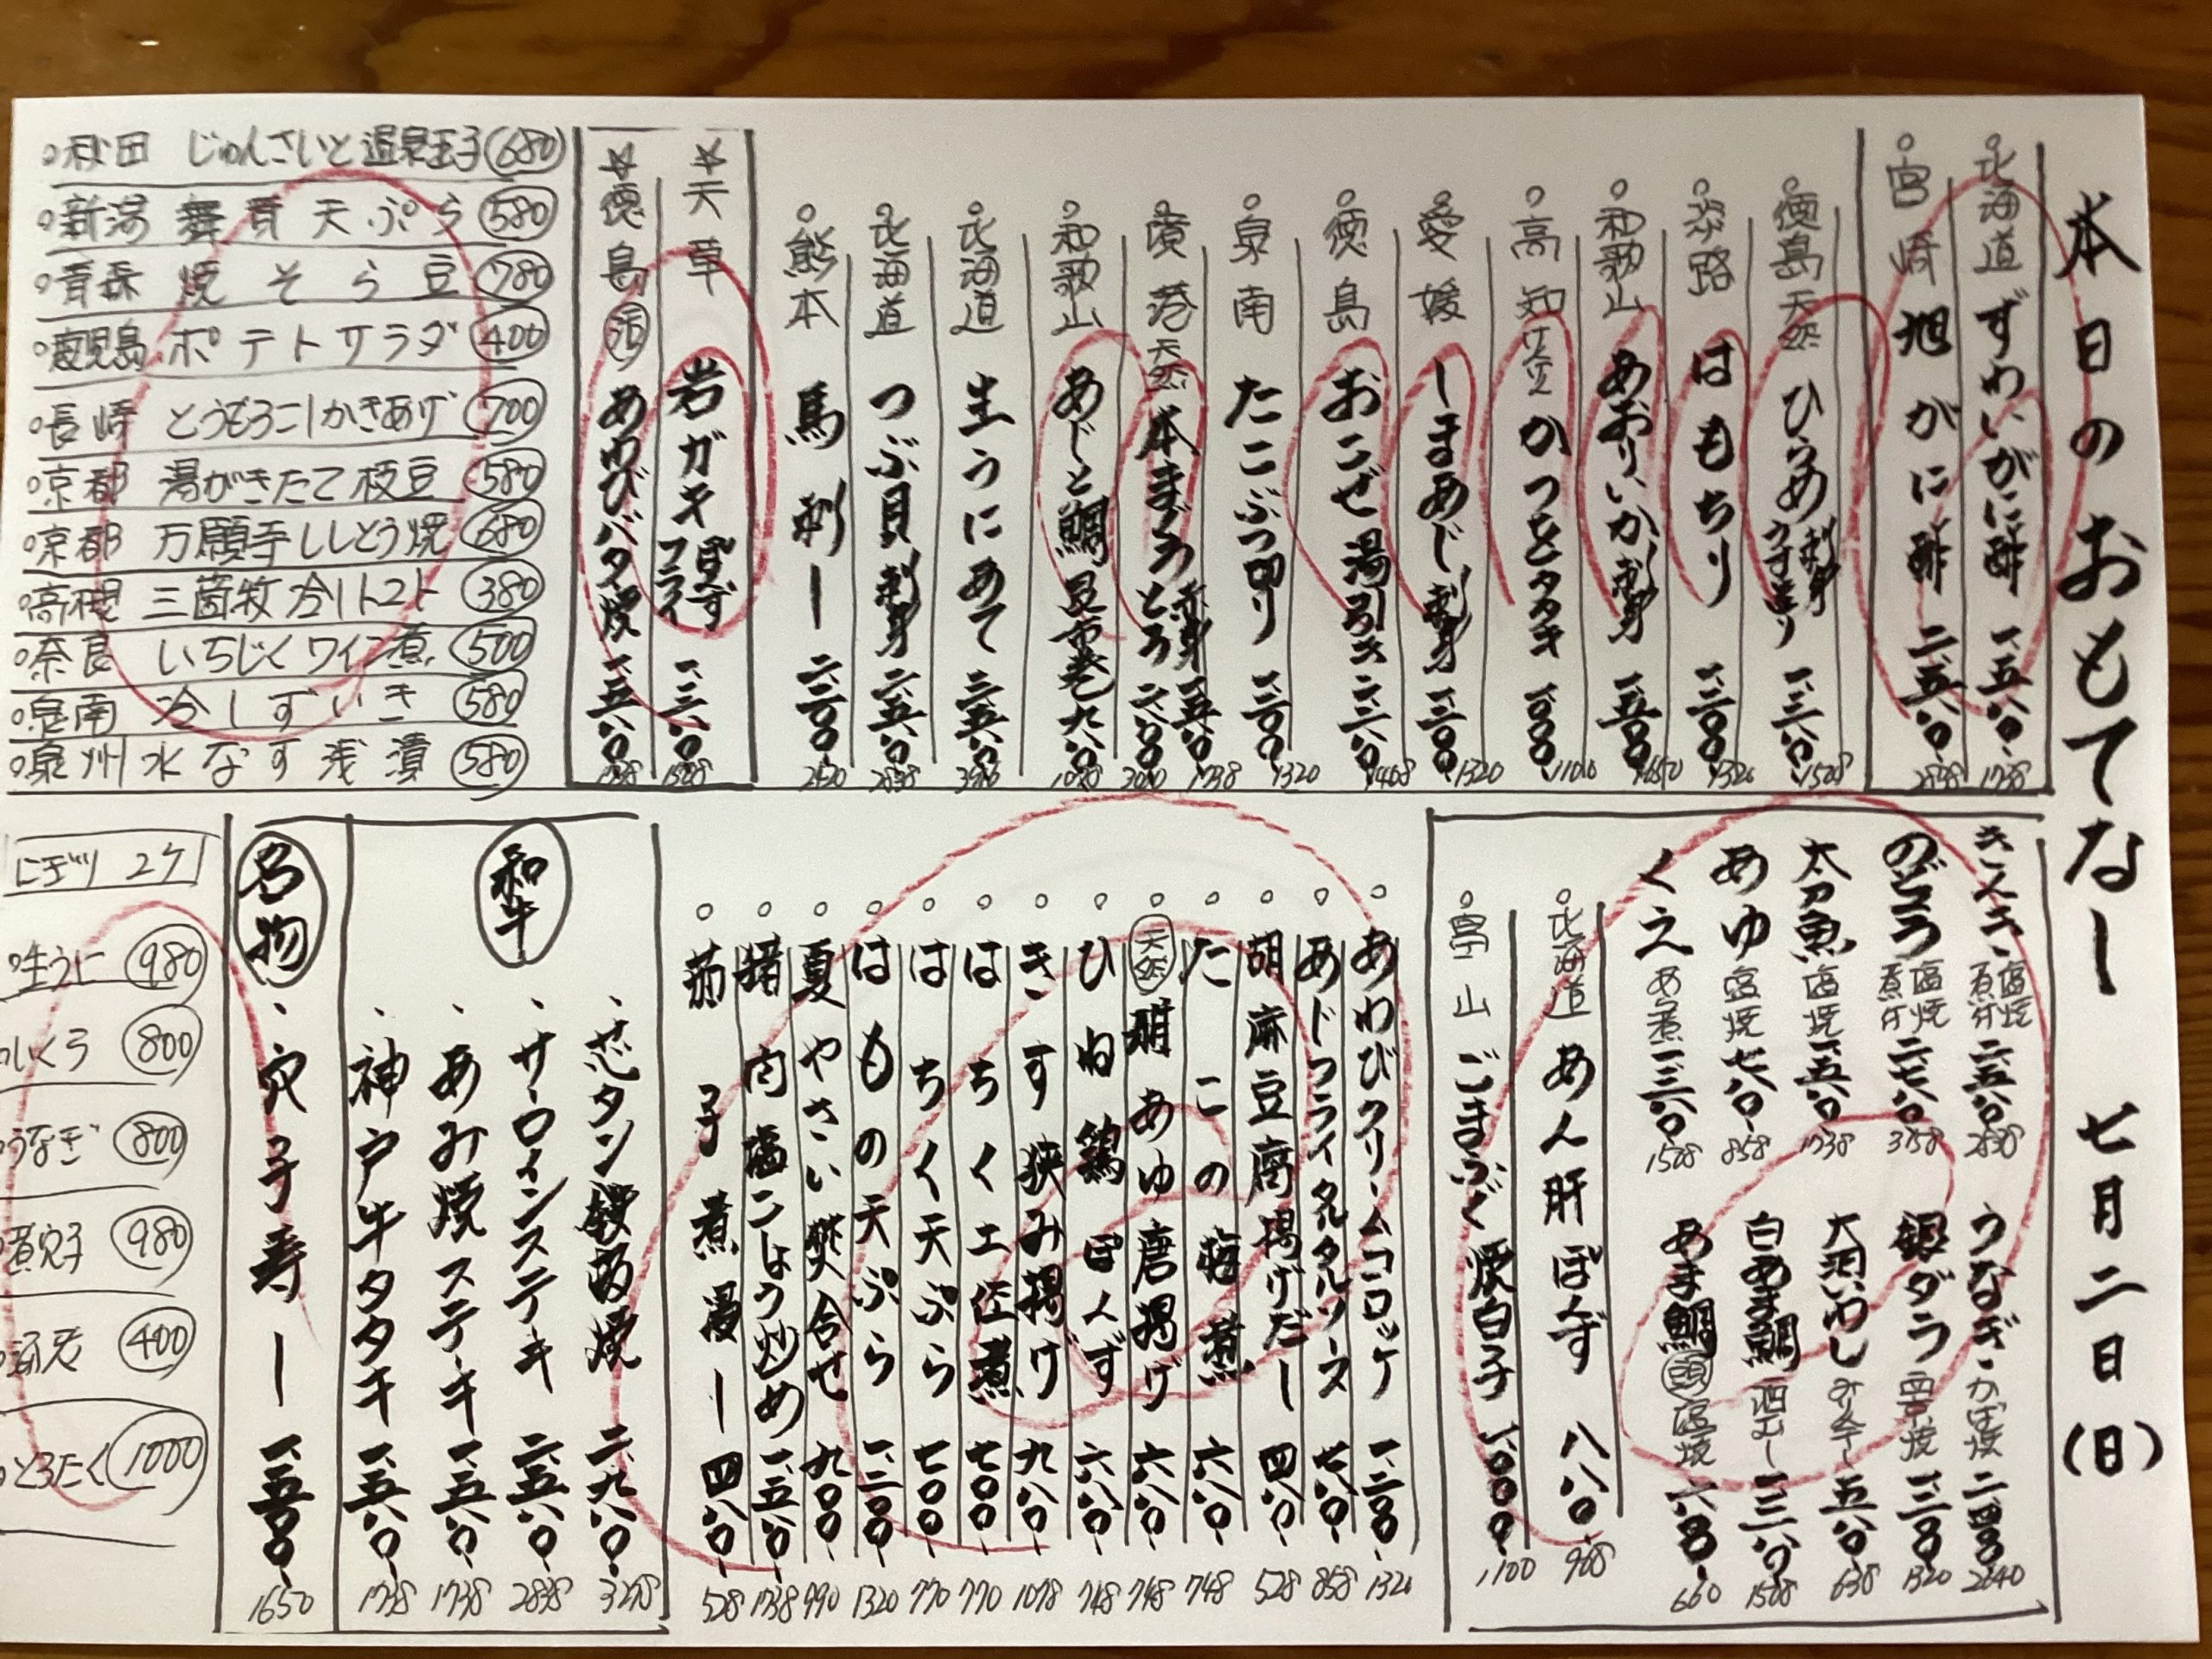 本日のおもてなし 七月二日(日)
北海道 ずわいがに酢 一、五八〇 1738
宮崎 旭がに酢 二、五八〇 2838
徳島 天然 ひらめ 刺身 うす造り 一、三八〇 1508
淡路 はもちり 一、二〇〇 1320
和歌山 あおりいか刺身 一、五〇〇 1650
高知 かつをタタキ 一、000 1100
愛媛 しまあじ刺身 一、二〇〇 1320
徳島 おこぜ湯引き 一、二八〇 1408
泉南 たこぶつ切り 一、二〇〇 1320
境港 天然 本まぐろ 赤身 一、五八〇 1738 とろ 二、八〇〇
和歌山 あじと鯛 昆布巻 九八〇 1078
北海道 生うにあて
北海道 つぶ貝刺身 二、五八〇 2838
熊本 馬刺し 二、二〇〇 2420
☆天草 岩ガキ ぽんず フライ 一、三八〇 1508
☆徳島 活 あわびバタ焼 一、五八〇 1738
秋田 じゅんさいと温泉玉子 680
新潟 舞茸天ぷら 580
青森 焼そら豆 780
鹿児島 ポテトサラダ 400
長崎 とうもろこしかきあげ 700
京都 湯がきたて枝豆 580
京都 万願寺ししとう焼 680
高槻 三箇牧冷しトマト 380
奈良 いちじくワイン煮 500
泉南 冷しずいき 580
泉州 水なす浅漬 580
きんき 塩焼 煮付 二、五八〇 2838
のどぐろ 塩焼 煮付
太刀魚 塩焼 一、五八〇 1738
あゆ 塩焼 七八〇 858
くえ あら煮 一、三八〇 1508
うなぎ・かば焼 二、四〇〇 2640
銀ダラ 西京焼 一、二〇〇 1320
大羽いわし 五八〇 638
白あま鯛 酒むし 一、三八〇 1508
あま鯛 頭 塩焼 六〇〇 660
北海道 あん肝ぽんず 八八〇 968
富山 ごまふぐ焼白子 一、〇〇〇 1100
あわびクリームコロッケ 一、二〇〇 1320
あじフライタルタルソース 七八〇 858
胡麻豆腐揚げだし 四八〇 528
たこの梅煮 六八〇 748
天然 稚あゆ唐揚げ 六八〇 748
ひね鶏ぽんず 六八〇 748
きす挟み揚げ 九八〇 1078
はちく土佐煮 七〇〇 770
はちく天ぷら 七〇〇 770
はもの天ぷら 一、二〇〇 1320
夏やさい炊合せ 九〇〇 990
猪肉塩こしょう炒め 一、五八〇 1738
茄子煮浸し 四八〇 528
和牛
芯タン 焼 二、九八〇 3278
サーロインステーキ 二、五八〇 2838
あみ焼ステーキ 一、五八〇 1738
神戸牛タタキ 一、五八〇 1738
名物
穴子寿し 一、五〇〇 1650
にぎり 2ケ
生うに 980
いくら 800
うなぎ 800
煮穴子 980
400
とろたく 1000